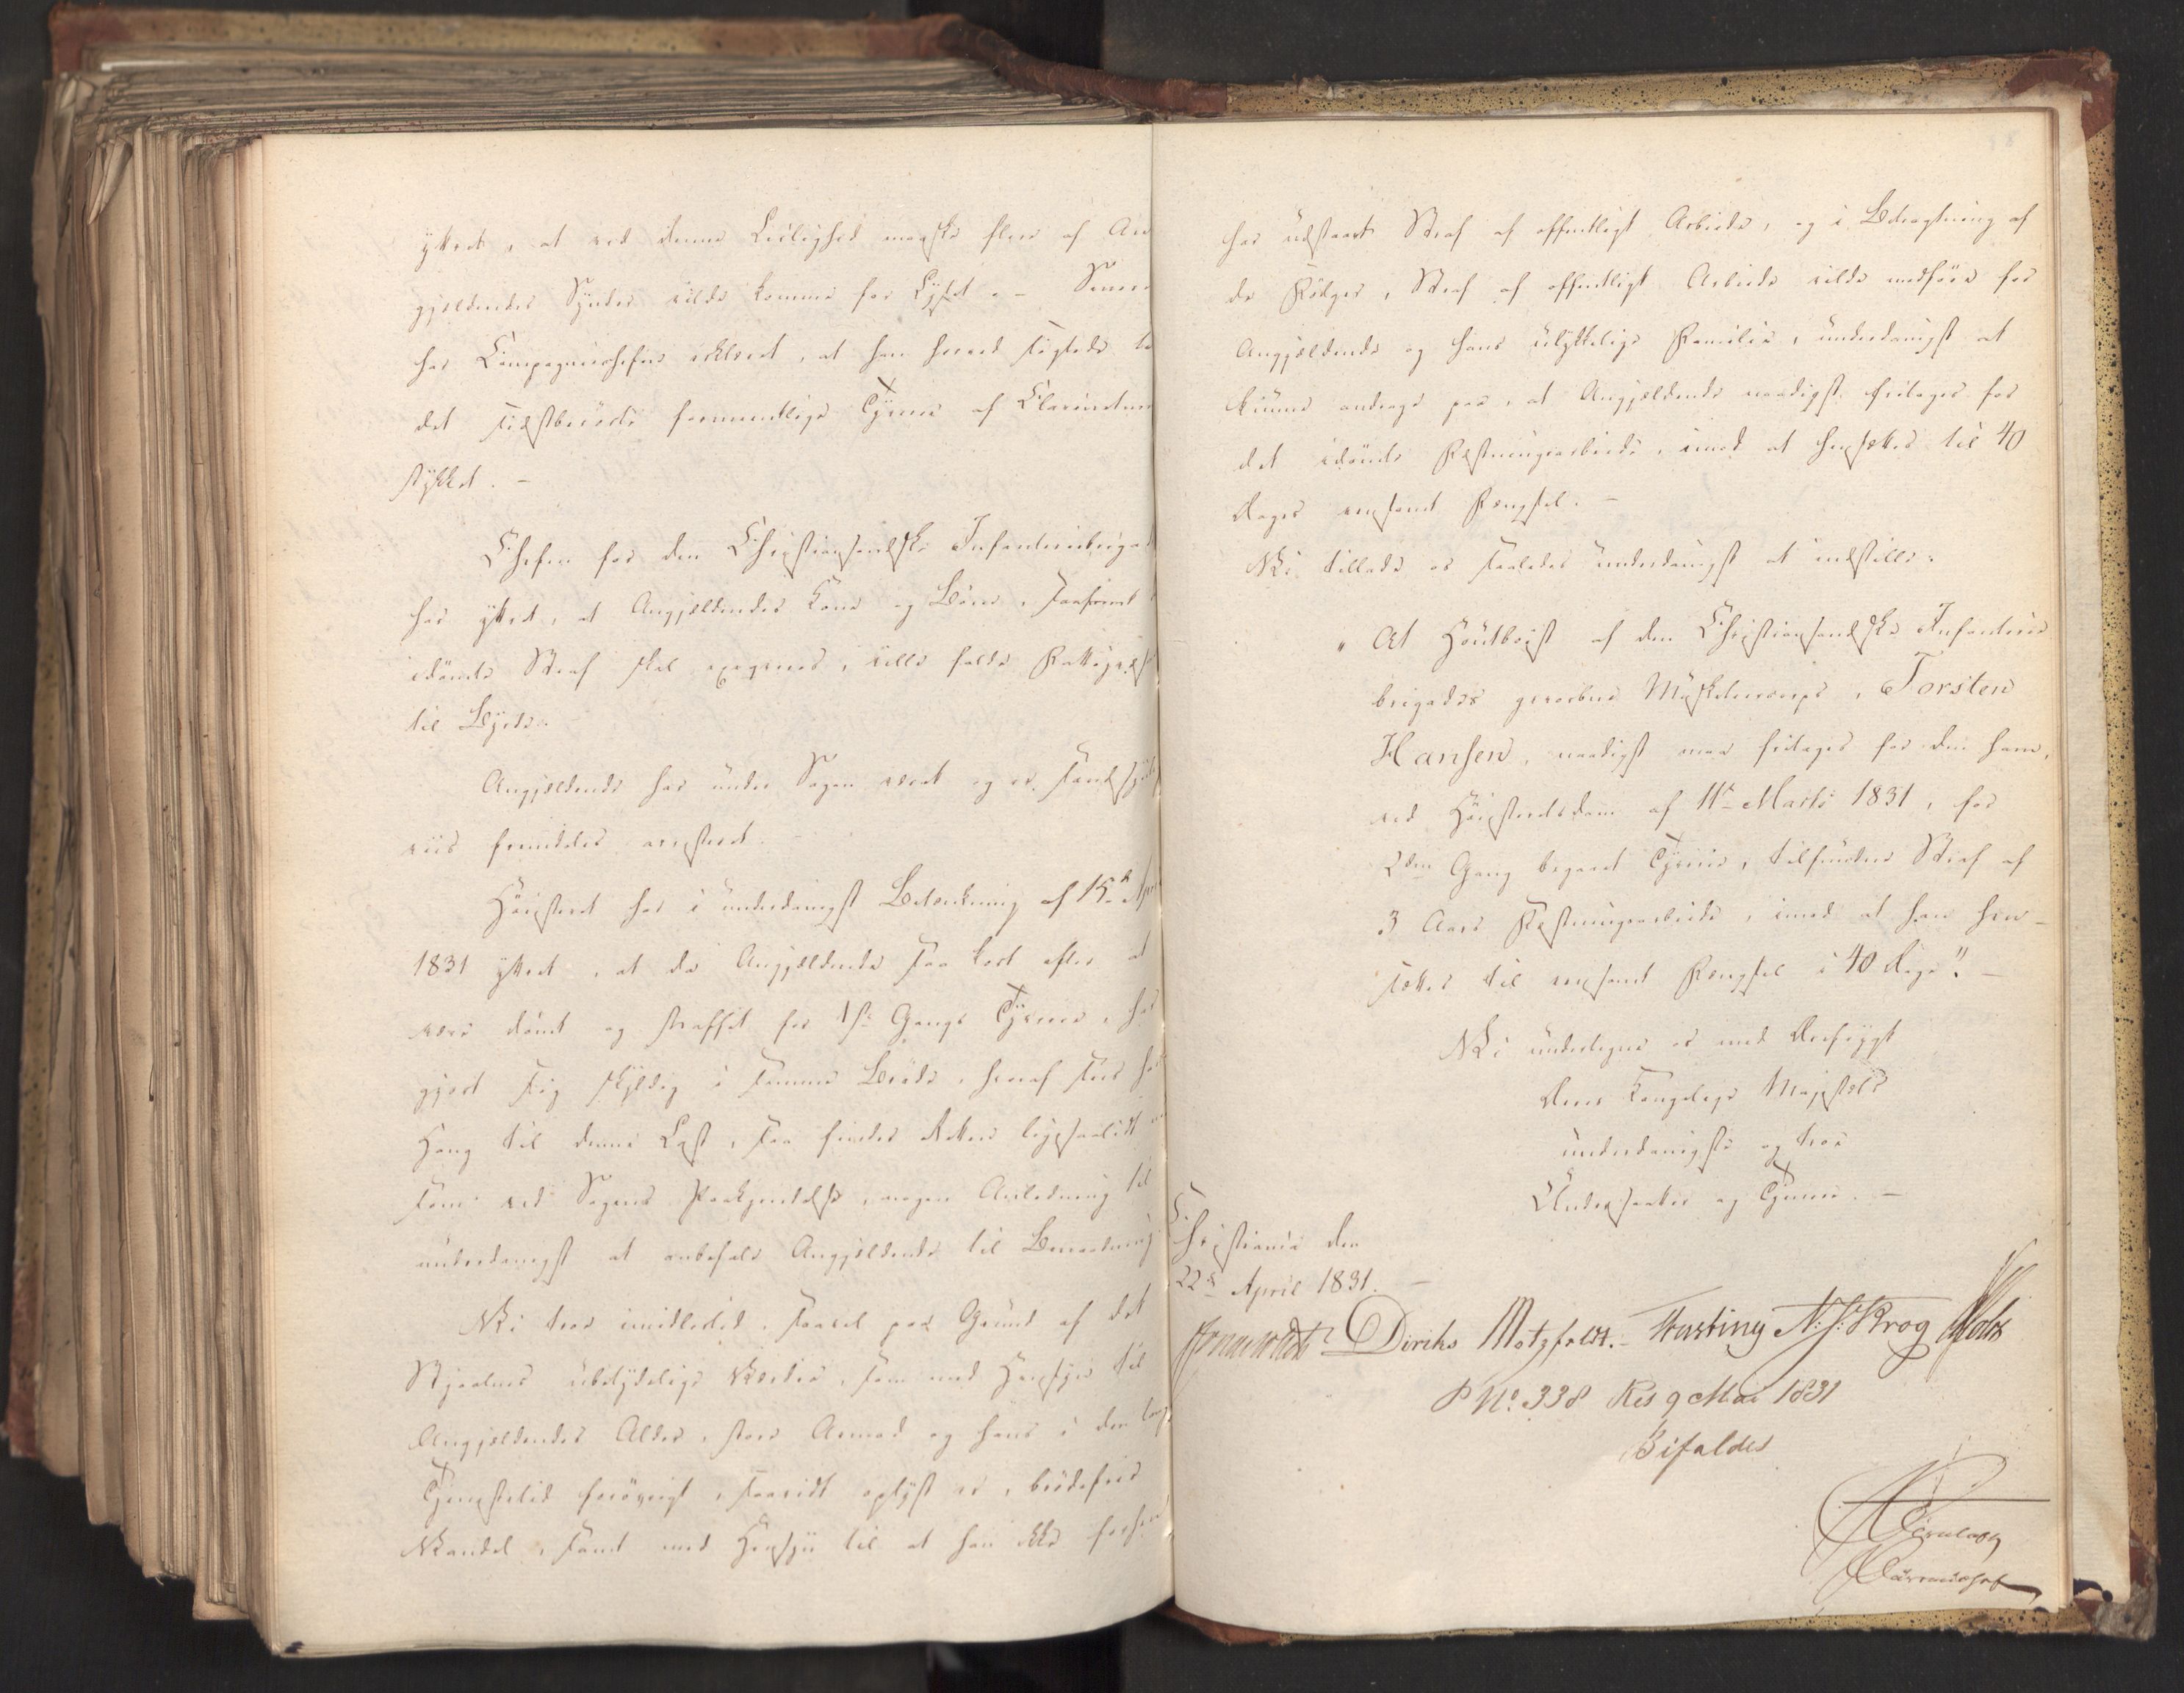 yttret, at ved denne Leilighed maaske flere af An
gjældendes Synder vilde komme for Lyset. – Senere
har Compagniechefen erklæret, at han herved sigtede
det sidstberørte formeentlige Tyverie af Clarinetmund
stykket. –
Chefen for den Christiansandske Infanteriebrigad
har yttret, at Angjældendes Kone og Børn, saafremt
idømte Straf skal exeqveres, ville falde Fattigvæs
til Byrde.
Angjældende har under Sagen været og er, sandsyn
viis fremdeles arresteret.
Høiesteret har i underdanigst Betænkning af 15de Apr
1831 yttret, at da Angjældende saa kort efter at
være dømt og straffet for 1ste Gangs Tyverie, har
gjort sig skyldig i samme Brøde, hvoraf sees hans
Hang til denne Last, saa finder Retten ligesaalidt nu
som ved Sagens Paakjendelse, nogen Anledning til
underdanigst at anbefale Angjældende til Benaadning.
Vi troe imidlertid, saavel paa Grund af det
Stjaalnes ubetydelige Værdie, som med Hensyn til
Angjældendes Alder, store Armod og hans i den lange
Tjenestetid forøvrigt, saavidt oplyst er, brødefrie
Vandel, samt med Hensyn til at han ikke forhen
har udstaaet Straf af offentligt Arbeide, og i Betragtning af
de Følger, Straf af offentligt Arbeide vilde medføre for
Angjældende og hans ulykkelige Familie, underdanigst at
kunne andrage paa, at Angjældende naadigst fritages for
det idømte Fæstningsarbeide, imod at hensættes til 40
Dages eensomt Fængsel. –
Vi tillade os saaledes underdanigst at indstille:
„At Houtboist af den Christiansandske Infanterie
brigades gevorbne Musketeercorps, Torsten
Hansen, naadigst maa fritages for den ham,
ved Høiesteretsdom af 11te Marts 1831, for
2den Gang begaaet Tyverie, tilfundne Straf af
3 Aars Fæstningsarbeide, imod at han hen-
sættes til eensomt Fængsel i 40 Dage". –
Vi undertegne os med Dybeste
Deres Kongelige Majestæts
underdanigste og troe
Undersaatter og Tjenere. –
Christiania den
22de April 1831. –
Diriks Motzfeldt. – Fasting N. J. Krog Holst
P No. 338 Res 9 Mai 1831
Bifaldes